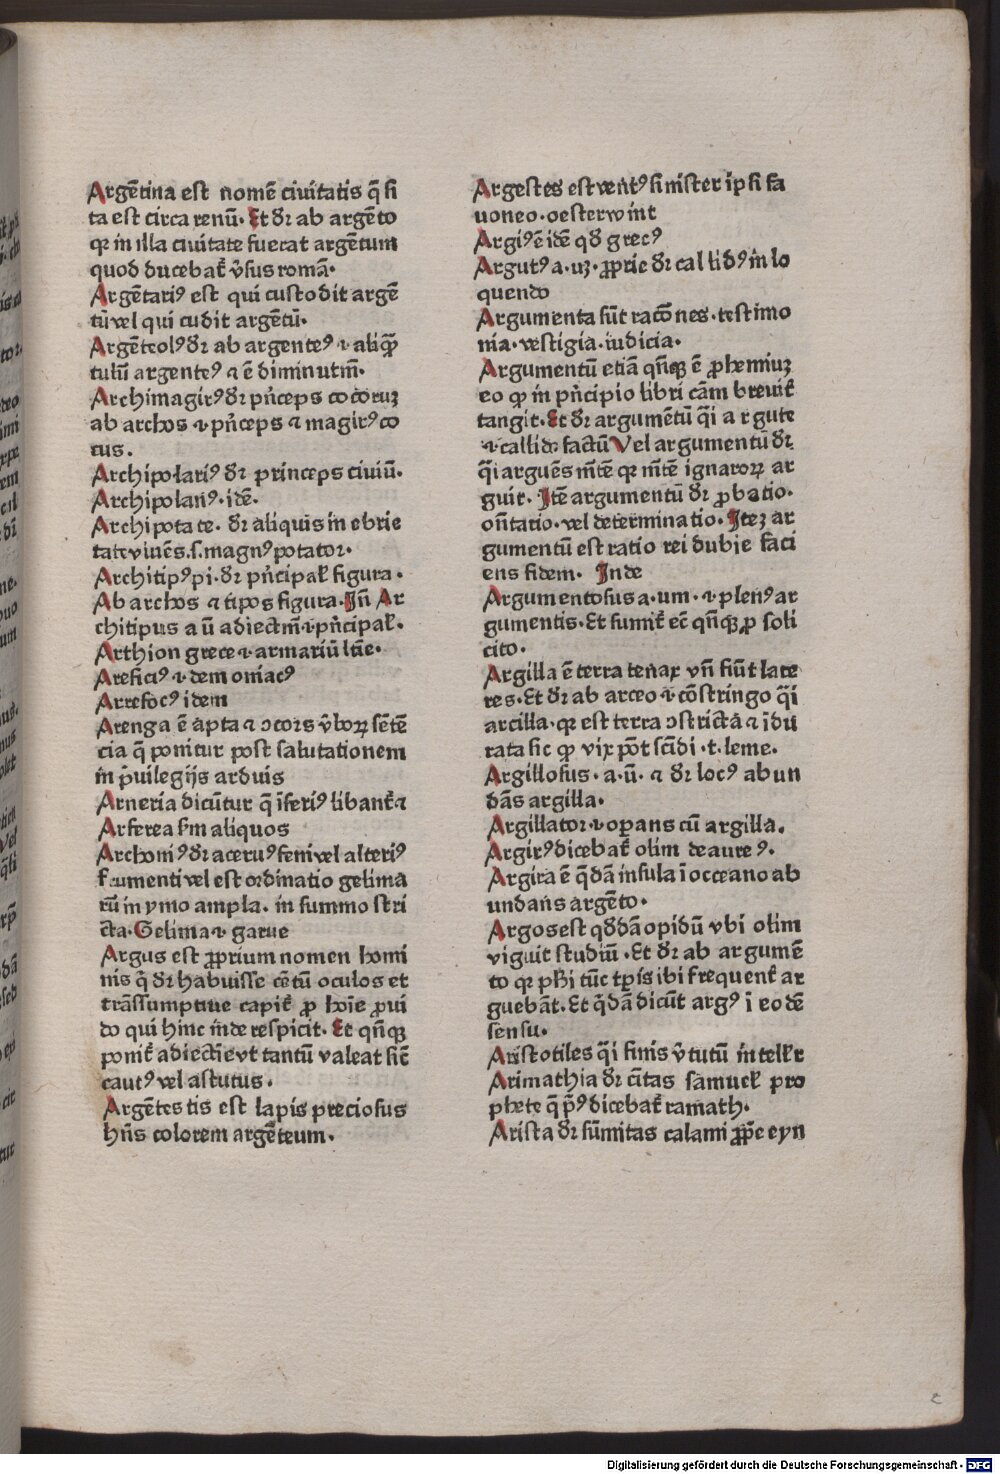 Argẽtina est nomẽ ciuitatis q̃ si
ta est circa renũ. Et dr̃ ab argẽto
qꝛ in illa ciuitate fuerat argẽtum
quod ducebat̃ v̉sus romã.
Argẽtariꝰ est qui custodit argẽ
tũ vel qui cudit argẽtũ.
Argẽteolꝰ dr̃ ab argenteꝰ ⁊ aliq̃ꝫ
tulũ argenteꝰ ⁊ ẽ diminutiũ.
Archimagirꝰ dr̃ pñceps cocoruꝫ
ab archos ⁊ pñceps ⁊ magirꝰ co
cus.
Archipolariꝰ dr̃ princeps ciuiũ.
Archipolanꝰ. idẽ.
Archipotate. dr̃ aliquis in ebrie
tate viuẽs.s.magnꝰ potator.
Architipꝰ pi. dr̃ pñcipal̃ figura.
Ab archos ⁊ tipos figura. Iñ Ar
chitipus a ũ adiectiũ ⁊ pñcipal̃.
Arthion grece ⁊ armariũ latĩe.
Areficiꝰ ⁊ demoniacꝰ
Arrefocꝰ idem
Arenga ẽ apta ⁊ ↄcors v̉boꝝ sẽtẽ
cia q̃ ponitur post salutationem
in p̉uilegijs arduis
Arneria dicũtur q̃ ĩferiꝰ libant̃ ⁊
Arferea s̃m aliquos
Archoniꝰ dr̃ aceruꝰ feni vel alteriꝰ
frumenti vel est ordinatio gelima
rũ in ymo ampla. in summo stri
cta. Gelima ⁊ garue
Argus est ꝓprium nomen homi
nis q̉ dr̃ habuisse cẽtũ oculos et
trãssumptiue capit̃ ꝓ hoĩe ꝓui
do qui hinc inde respicit. Et qñqꝫ
ponit̃ adiectiẽ vt tantũ valeat sic̃
cautꝰ vel astutus.
Argẽtestis est lapis preciosus
hñs colorem argẽteum.
Argestes est ventꝰ sinister ipsi fa
uoneo. oesterwint
Argiꝰ ẽ idẽ qd̃ grecꝰ
Argutꝰ a. uꝫ. ꝓprie dr̃ callidꝰ in lo
quendo
Argumenta sũt racõnes. testimo
nia. vestigia. iudicia.
Argumentũ etiã qñqꝫ ẽ ꝓhemiuꝫ
eo ꝙ in pñcipio libri cãm breuit̃
tangit. Et dr̃ argumẽtũ q̃i argute
⁊ callide factũ Vel argumentũ dr̃
q̃i arguẽs mẽtẽ qꝛ mẽtẽ ignaroꝝ ar
guit. Itẽ argumentũ dr̃ ꝓbatio.
oñtatio. vel determinatio. Iteꝫ ar
gumentũ est ratio rei dubie faci
ens fidem. Inde
Argumentosus a. um. ⁊ plenꝰ ar
gumentis. Et sumit̃ ec̃ qñqꝫ ꝓ soli
cito.
Argilla ẽ terra tenax vñ fiũt late
res. Et dr̃ ab arceo ⁊ cõstringo q̃i
arcilla. qꝛ est terra ↄstricta ⁊ ĩdu
rata sic ꝙ vix põt scĩdi. t. leme.
Argillosus. a. ũ. ⁊ dr̃ locꝰ abun
dãs argilla.
Argillator ⁊ oꝑans cũ argilla.
Argirꝰ dicebat̃ olim deaureꝰ.
Argira ẽ q̃dã insula ĩ occeano ab
undans argẽto.
Argos est qd̃dã opidũ vbi olim
viguit studiũ. Et dr̃ ab argumẽ
to qꝛ ph̃i tũc tp̃is ibi frequent̃ ar
guebãt. Et q̉dã dicũt argꝰ ĩ eodẽ
sensu.
Aristotiles q̃i finis v̉tutũ intell̃r
Arimathia dr̃ cĩtas samuel̃ pro
phete q̃ pͥꝰ dicebat̃ ramath.
Arista dr̃ sũmitas calami ꝓp̃e eyn
Digitalisierung gefördert durch die Deutsche Forschungsgemeinschaft - DFG